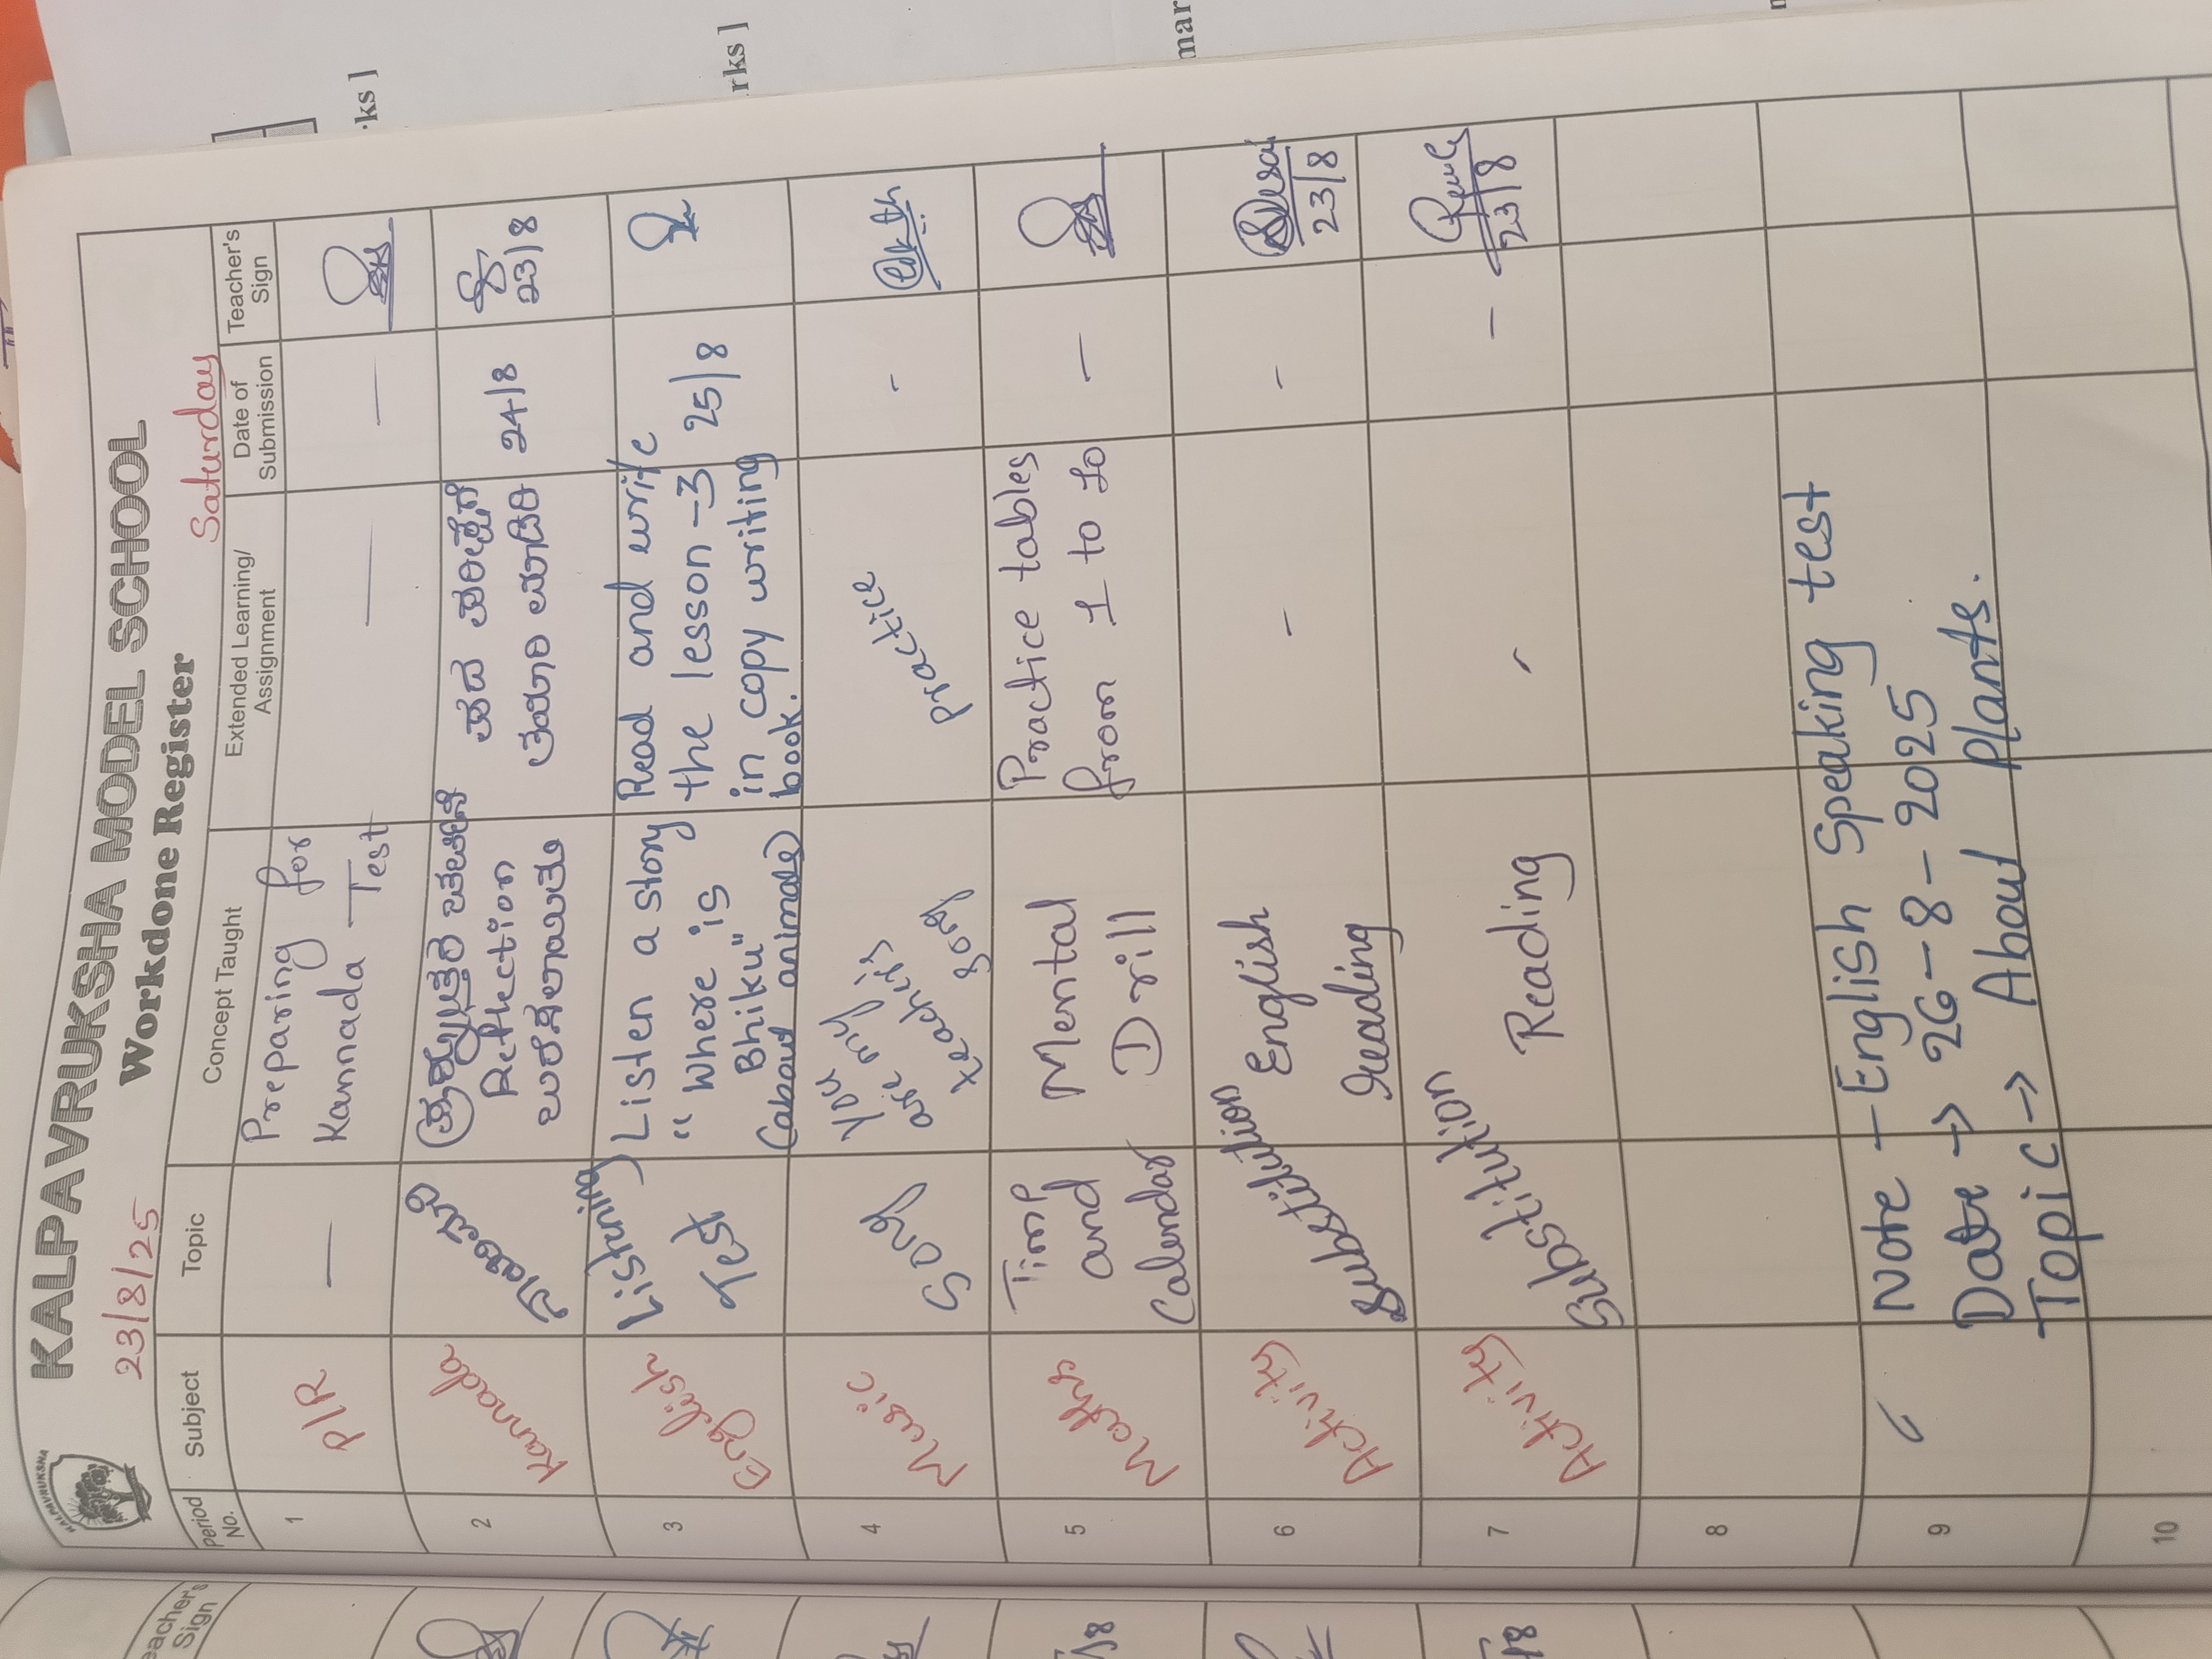 KALPAVRUKSHA MODEL SCHOOL
Workdone Register
23/8/25
Saturday
Period No.
Subject
Topic
Concept Taught
Extended Learning/
Assignment
Date of
Submission
Teacher's
Sign
1
P/R
—
Preparing for
Kannada Test
—
—
2
Kannada
Rettection
24/8
23/8
3
English
Listening
Test
Listen a story
“ Where is
Bhiku”
(about animals)
Read and write
the lesson -3
in copy writing
book.
25/8
4
Music
Song
You my
are my
teachers
song
Practice
-
5
Maths
Time
and
Calendar
Mental
Drill
Practice tables
from 1 to 10
—
6
Activity
Substitution
English
reading
-
-
23/8
7
Activity
Substitution
Reading
-
-
23/8
8
9
Note - English Speaking test
Date → 26-8-2025
Topic → About plants.
10
KALPAVRUKSHA
Teacher's
Sign
ks ]
rks ]
mar